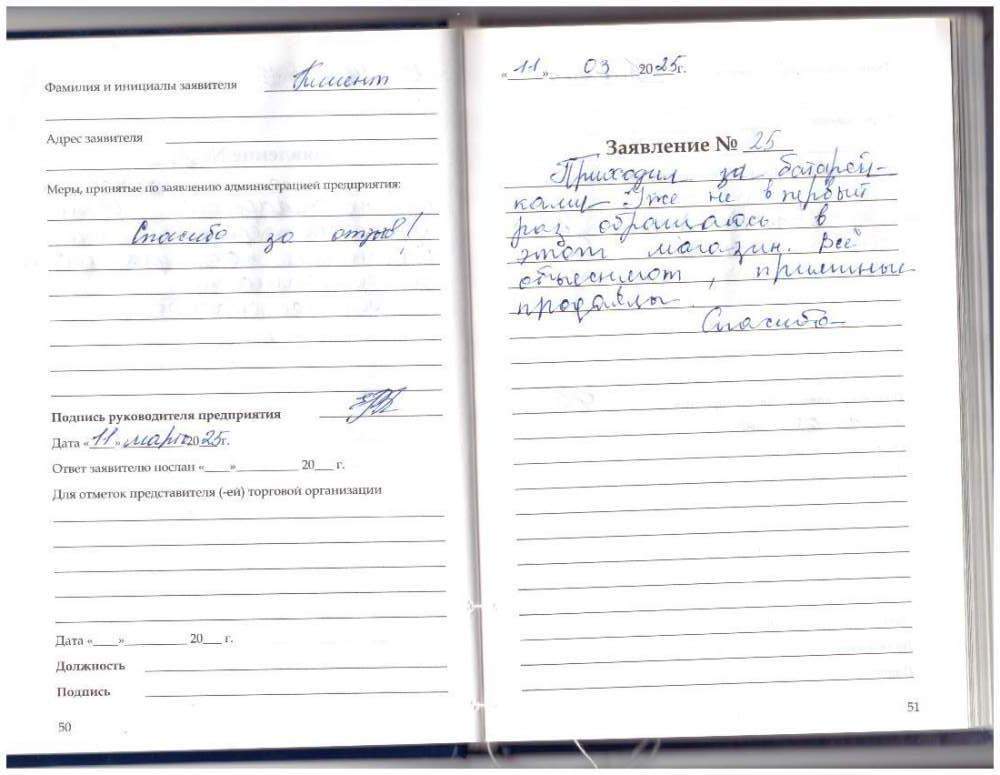 Фамилия и инициалы заявителя Клиент
Адрес заявителя
Меры, принятые по заявлению администрацией предприятия:
Спасибо за отзыв!
Подпись руководителя предприятия
Дата «11» март 2025г.
Ответ заявителю послан «___»_________ 20___ г.
Для отметок представителя (-ей) торговой организации
Дата «___»_________ 20___ г.
Должность
Подпись
50
«11» 03 2025г.
Заявление № 25
Приходил за батарей-
ками. Уже не в первый
раз обращаюсь в
этот магазин. Всё
объясняют, приятные
продавцы.
Спасибо
51